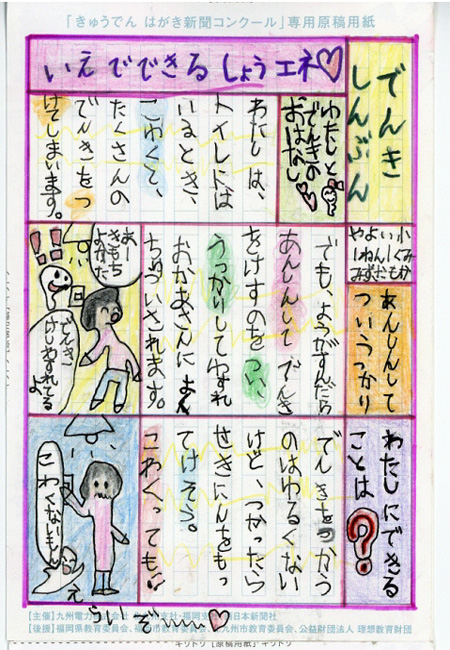 「きゅうでん はがき新聞コンクール」専用原稿用紙
でんき
しんぶん
いえでできるしょうエネ♡
わたしと
でんきの
おはなし
わたしは、
トイレには
いるとき、
こわくて、
たくさんの
でんきをつ
けてしまいます。
やよい小
1ねん1くみ
あんしんして
ついうっかり
でも、ようがすんだら
あんしんしてでんき
をけすのをつい、
うっかりしてわすれ
おかあさんに
ちゅういされます。
あー
きもち
よかった
!!
でんき
けしわすれてる
よ
わたしにできる
ことは?
でんきをつかう
のはゆるくない
けど、つかったら
せきにんをもっ
てけそう。
こわくっても!!
こわくないもん
え
ういぞ〜〜♡
【主催】九州電力株式会社 支社・福岡支 日本新聞社
【後援】福岡県教育委員会、福岡市教育委員会、北九州市教育委員会、公益財団法人 理想教育財団
キリトリ［原稿用紙］キリトリ